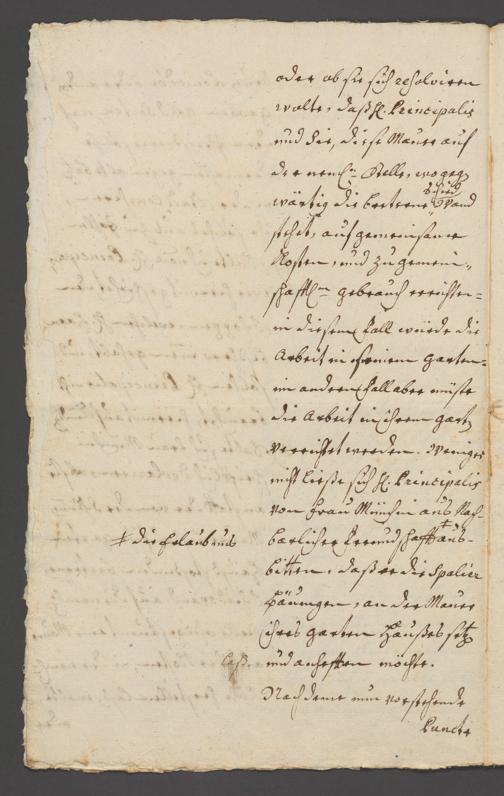 oder ob sie sich resolviren
wolte, daß H. Principalis
und sie, diese Mauer auf
der nemln. Stelle, wo geg
wärtig die bretrene Schied
Wand
stehet, auf gemeinsame
Kosten, und zu gemein„
schafftln. gebrauch errichten„
in diesem Fall würde die
Arbeit in seinem garten„
in andren Fall aber müste
die Arbeit in ihrem gart
verrichtet werden. Weniger
nicht ließe sich H. Principalis
von Frau Münchin aus Nach„
barlicher Freundschafft ‡ aus„
‡ die Erlaubnis
bitten, daß er die Spalier
Bäumgen, an der Mauer
ihres garten Haußes setz
und anhefften möchte.
Nachdeme nun vorstehende
Puncte